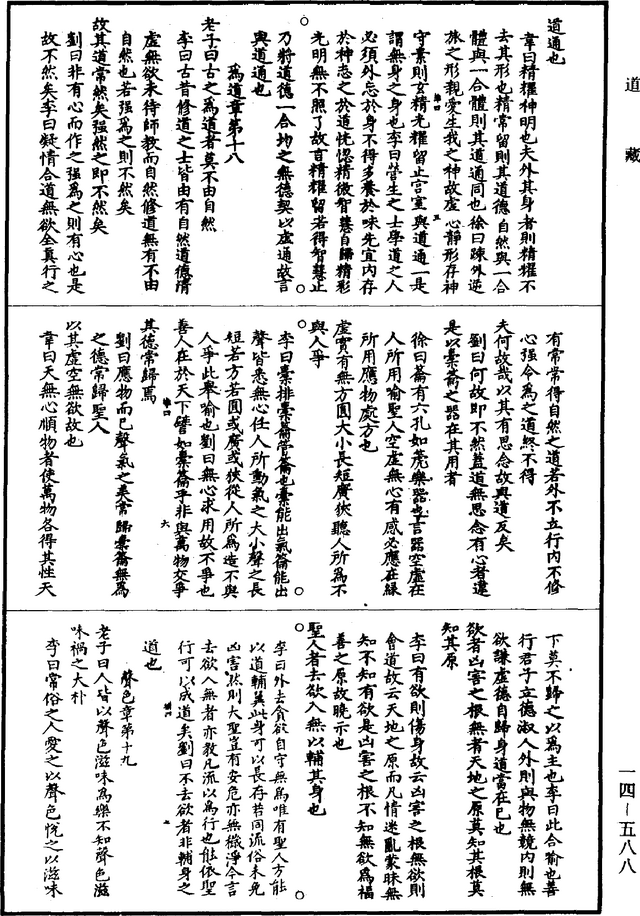 道藏
道通也
韋曰精耀神明也夫外其身者則精耀不
去其形也精常留則其道德自然與一合
體與一合體則其道通同也徐曰疎外逆
旅之形親愛生我之神故虛心靜形存神
守素則玄精光耀留止宫室與道通一是
謂無身之身也李曰營生之士學道之人
必須外忘於身不得多養於味先宜內存
於神忘之於道恍惚精微智慧自歸精彩
光明無不照了故言精耀留若得智慧止
乃將道德一合均之無德契以虛通故言
與道通也
爲道章第十八
老子曰古之爲道者莫不由自然
李曰古昔修道之士皆由有自然道德清
虛無欲未待師教而自然修道無有不由
自然也若强爲之則不然矣
故其道常然矣强然之即不然矣
劉曰非有心而作之强爲之則有心也是
故不然矣李曰凝情合道無欲全真行之
有常常得自然之道若外不立行內不修
心强令爲之道終不得
夫何故哉以其有思念故與道反矣
劉曰何故即不然蓋道無思念有心者違
是以橐籥之器在其用者
徐曰籥有六孔如箎樂器也言器空虛在
人所用喻聖人空虛無心有感必應在緣
所用應物處方也
虛實有無方圓大小長短廣狹聽人所爲不
與人爭
李曰橐排橐籥管籥也橐能出氣籥能出
聲皆悉無心任人所動氣之大小聲之長
短若方若圓或廣或狹從人所爲造不與
人爭此舉喻也劉曰無心求用故不爭也
善人在於天下譬如橐籥乎非與萬物交爭
其德常歸焉
劉曰應物而已聲氣之美常歸橐籥無爲
之德常歸聖人
以其虛空無欲故也
韋曰天無心順物者使萬物各得其性天
下莫不歸之以爲主也李曰此合喻也善
行君子立德淑人外則與物無競內則無
欲謙虛德自歸身道當在己也
欲者凶害之根無者天地之原莫知其根莫
知其原
李曰有欲則傷身故云凶害之根無欲則
會道故云天地之原而凡情迷亂蒙昧無
知不知有欲是凶害之根不知無欲爲福
善之原故曉示也
聖人者去欲入無以輔其身也
李曰外去貪欲自守無爲唯有聖人方能
以道輔其此身可以長存若同流俗未免
凶害然則大聖豈有安危亦無穢淨今言
去欲入無者亦教凡流以爲行也能依聖
行可以成道矣劉曰不去欲者非輔身之
道也
聲色章第十九
老子曰人皆以聲色滋味爲樂不知聲色滋
味禍之大朴
李曰常俗之人愛之以聲色悅之以滋味
一四—五八八